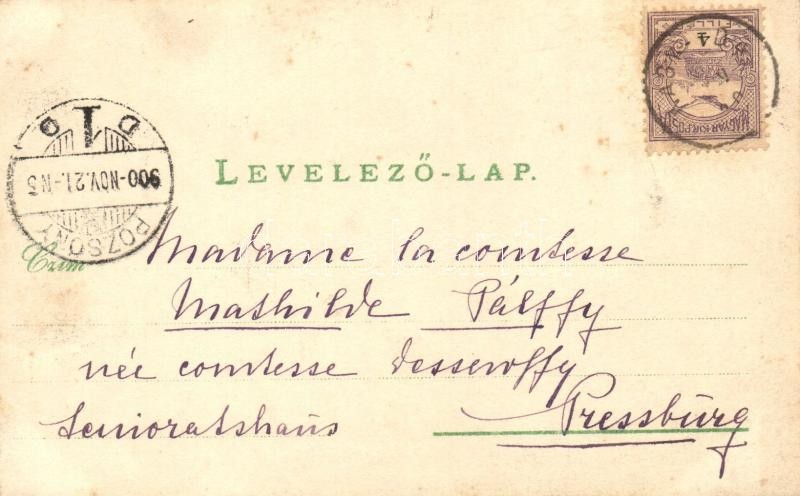 MAGYAR KIR. POSTA
4
POZSONY
900-NOV.21.-N5
1
LEVELEZŐ-LAP.
Czím
Madame la comtesse
Mathilde Pálffy
née comtesse Dessewffy
Senioratshaus
Pressburg